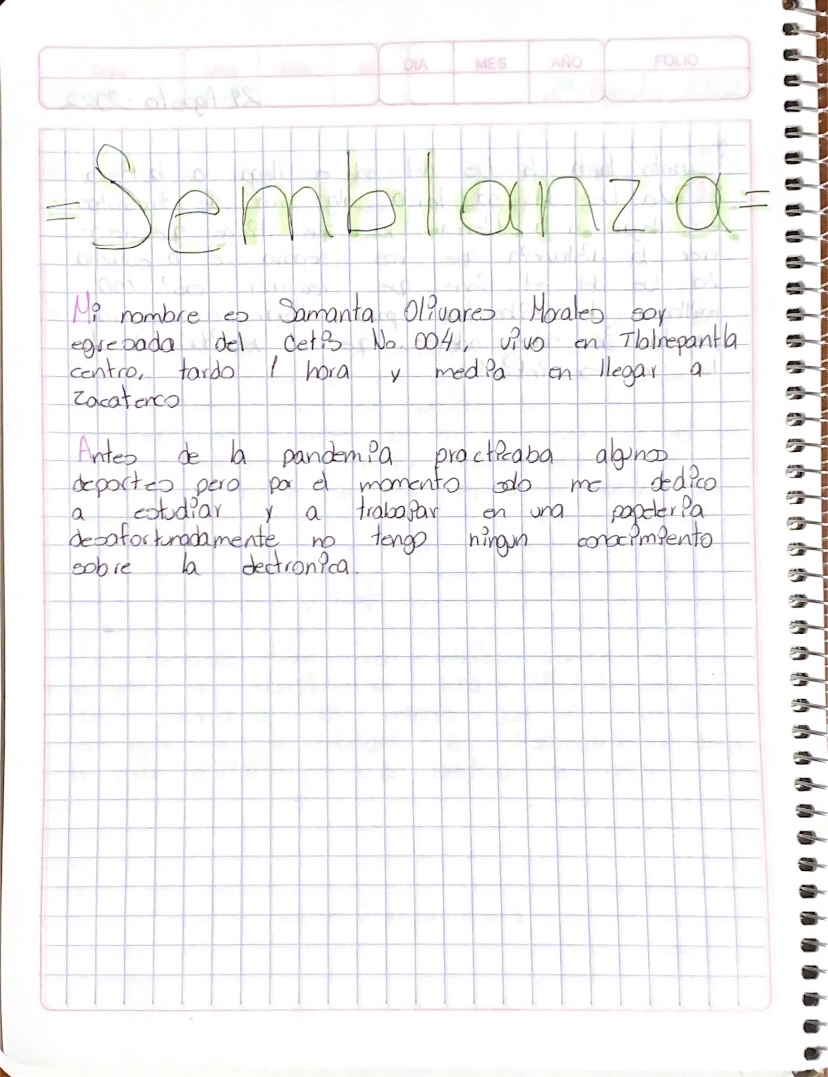 DIA MES AÑO FOLIO
=Semblanza=
Mi nombre es Samanta Olivares Morales soy
egresada del Cetis No. 004, vivo en Tlalnepantla
centro, tardo 1 hora y media en llegar a
Zacatenco
Antes de la pandemia practicaba algunos
deportes pero por el momento solo me dedico
a estudiar y a trabajar en una papeleria
desafortunadamente no tengo ningun conocimiento
sobre la electronica.